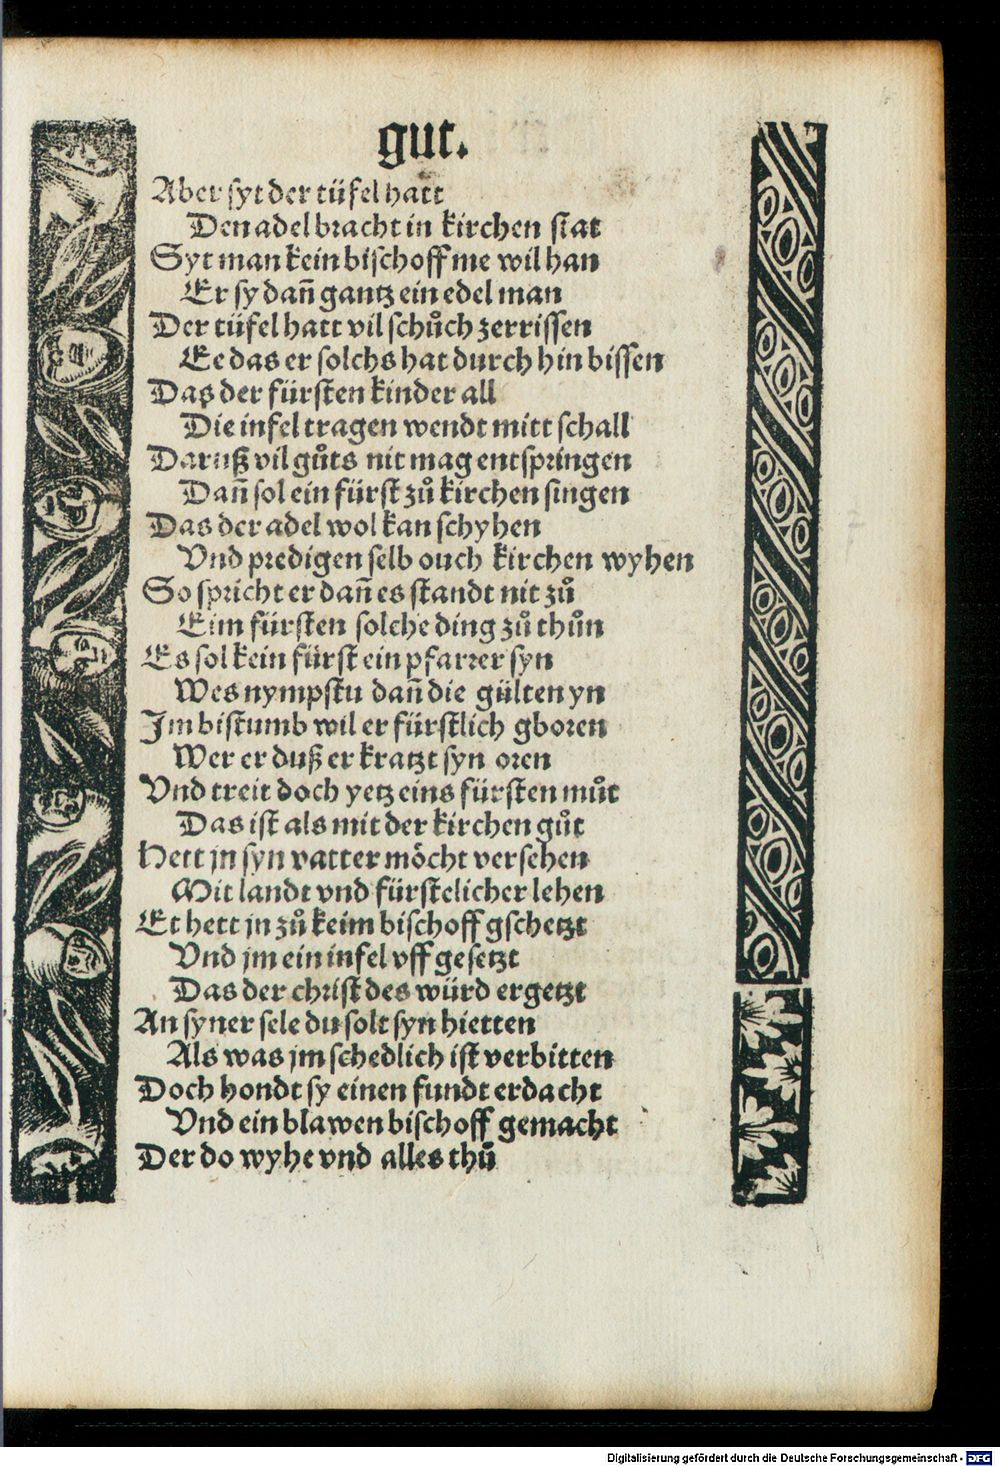 gut.
Aber syt der tüfel hatt
Den adel bracht in kirchen stat
Syt man kein bischoff me wil han
Er sy dañ gantz ein edel man
Der tüfel hatt vil schůch zerrissen
Ee das er solchs hat durch hin bissen
Das der fürsten kinder all
Die infel tragen wendt mitt schall
Daruß vil gůts nit mag entspringen
Dañ sol ein fürst zů kirchen singen
Das der adel wol kan schyhen
Vnd predigen selb ouch kirchen wyhen
So spricht er dañ es standt nit zů
Eim fürsten solche ding zů thůn
Es sol kein fürst ein pfarrer syn
Wes nympstu dañ die gülten yn
Im bistumb wil er fürstlich gboren
Wer er duß er kratzt syn oren
Vnd treit doch yetz eins fürsten můt
Das ist als mit der kirchen gůt
Hett jn syn vatter möcht versehen
Mit landt vnd fürstelicher lehen
Et hett jn zů keim bischoff gschetzt
Vnd jm ein infel vff gesetzt
Das der christ des würd ergetzt
An syner sele du solt syn hietten
Als was jm schedlich ist verbitten
Doch hondt sy einen fundt erdacht
Vnd ein blawen bischoff gemacht
Der do wyhe vnd alles thů
Digitalisierung gefördert durch die Deutsche Forschungsgemeinschaft - DFG